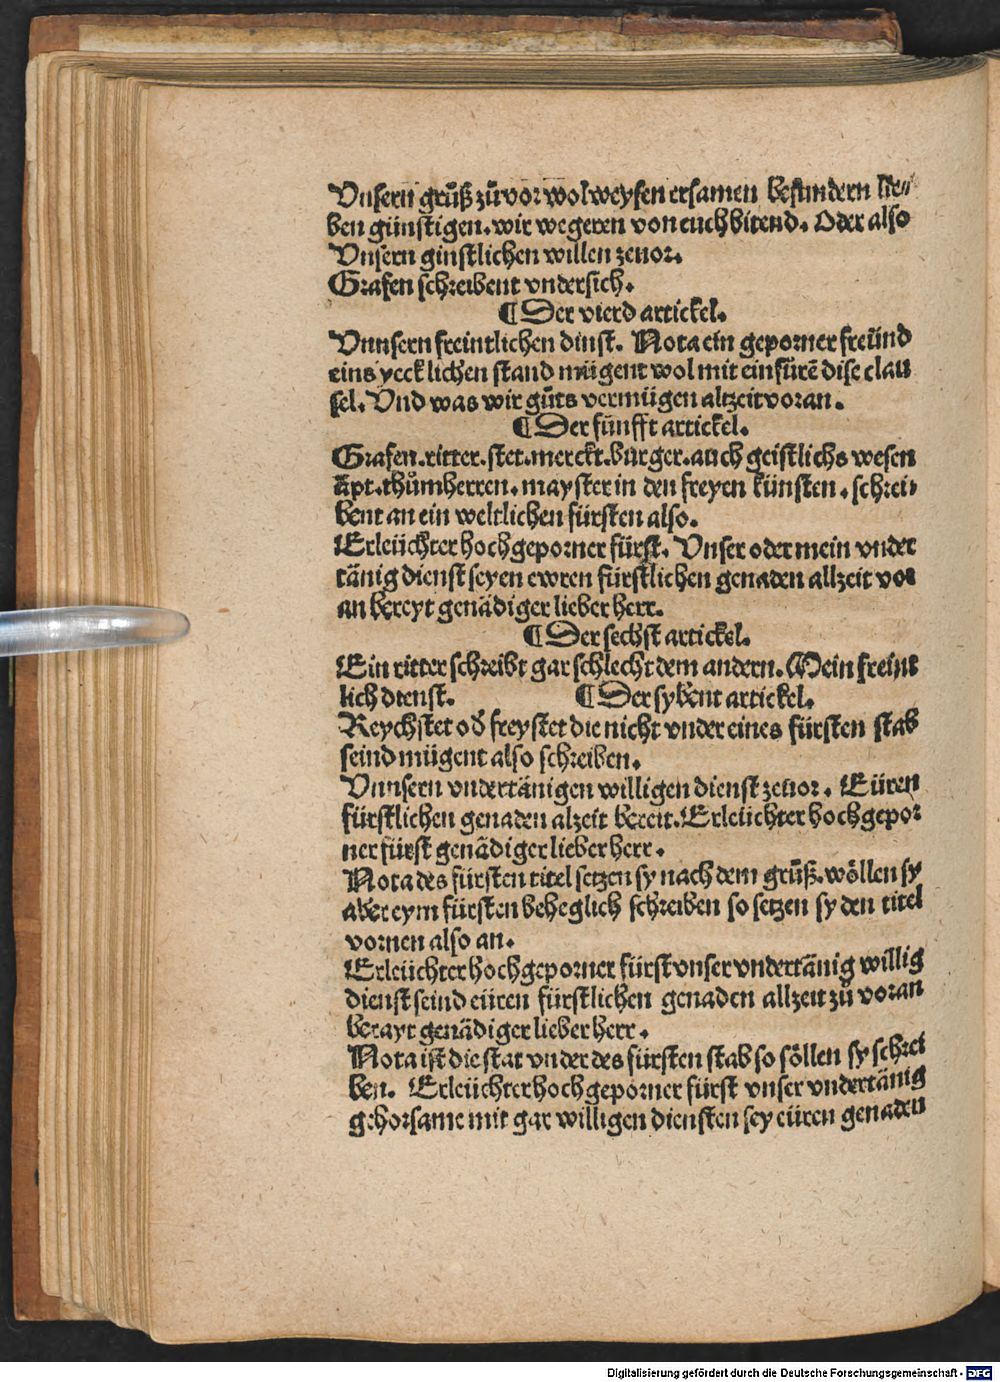 Vnsern grůß zůvor wolweysen ersamen besundern lie⸗
ben günstigen. wir wegeren von euch bitend. Oder also
Vnsern ginstlichen willen zeuor.
Grafen schreibent vndersich.
¶ Der vierd artickel.
Vnnsern freintlichen dinst. Nota ein geporner freünd
eins yecklichen stand mügent wol mit einfürē dise clau
sel. Vnd was wir gůts vermügen altzeit voran.
¶ Der fünfft artickel.
Grafen. ritter. stet. merckt. burger. auch geistlichs wesen
äpt. thůmherren. mayster in den freyen künsten. schrei⸗
bent an ein weltlichen fürsten also.
Erleüchter hochgeporner fürst. Vnser oder mein vnder
tänig dienst seyen ewren fürstlichen genaden allzeit vor
an bereyt genädiger lieber herr.
¶ Der sechst artickel.
Ein ritter schreibt gar schlecht dem andern. Mein freint
lich dienst. ¶ Der sybent artickel.
Reychstet od̕ freystet die nicht vnder eines fürsten stab
seind mügent also schreiben.
Vnnsern vndertänigen willigen dienst zeuor. Eüren
fürstlichen genaden alzeit bereit. Erleüchter hochgepor
ner fürst genädiger lieber herr.
Nota des fürsten titel setzen sy nach dem grůß. wöllen sy
aber eym fürsten beheglich schreiben so setzen sy den titel
vornen also an.
Erleüchter hochgeporner fürst vnser vndertänig willig
dienst seind eüren fürstlichen genaden allzeit zů voran
berayt genädiger lieber herr.
Nota ist die stat vnder des fürsten stab so söllen sy schrei
ben. Erleüchter hochgeporner fürst vnser vndertänig
gehorsame mit gar willigen diensten sey eüren genaden
Digitalisierung gefördert durch die Deutsche Forschungsgemeinschaft - DFG